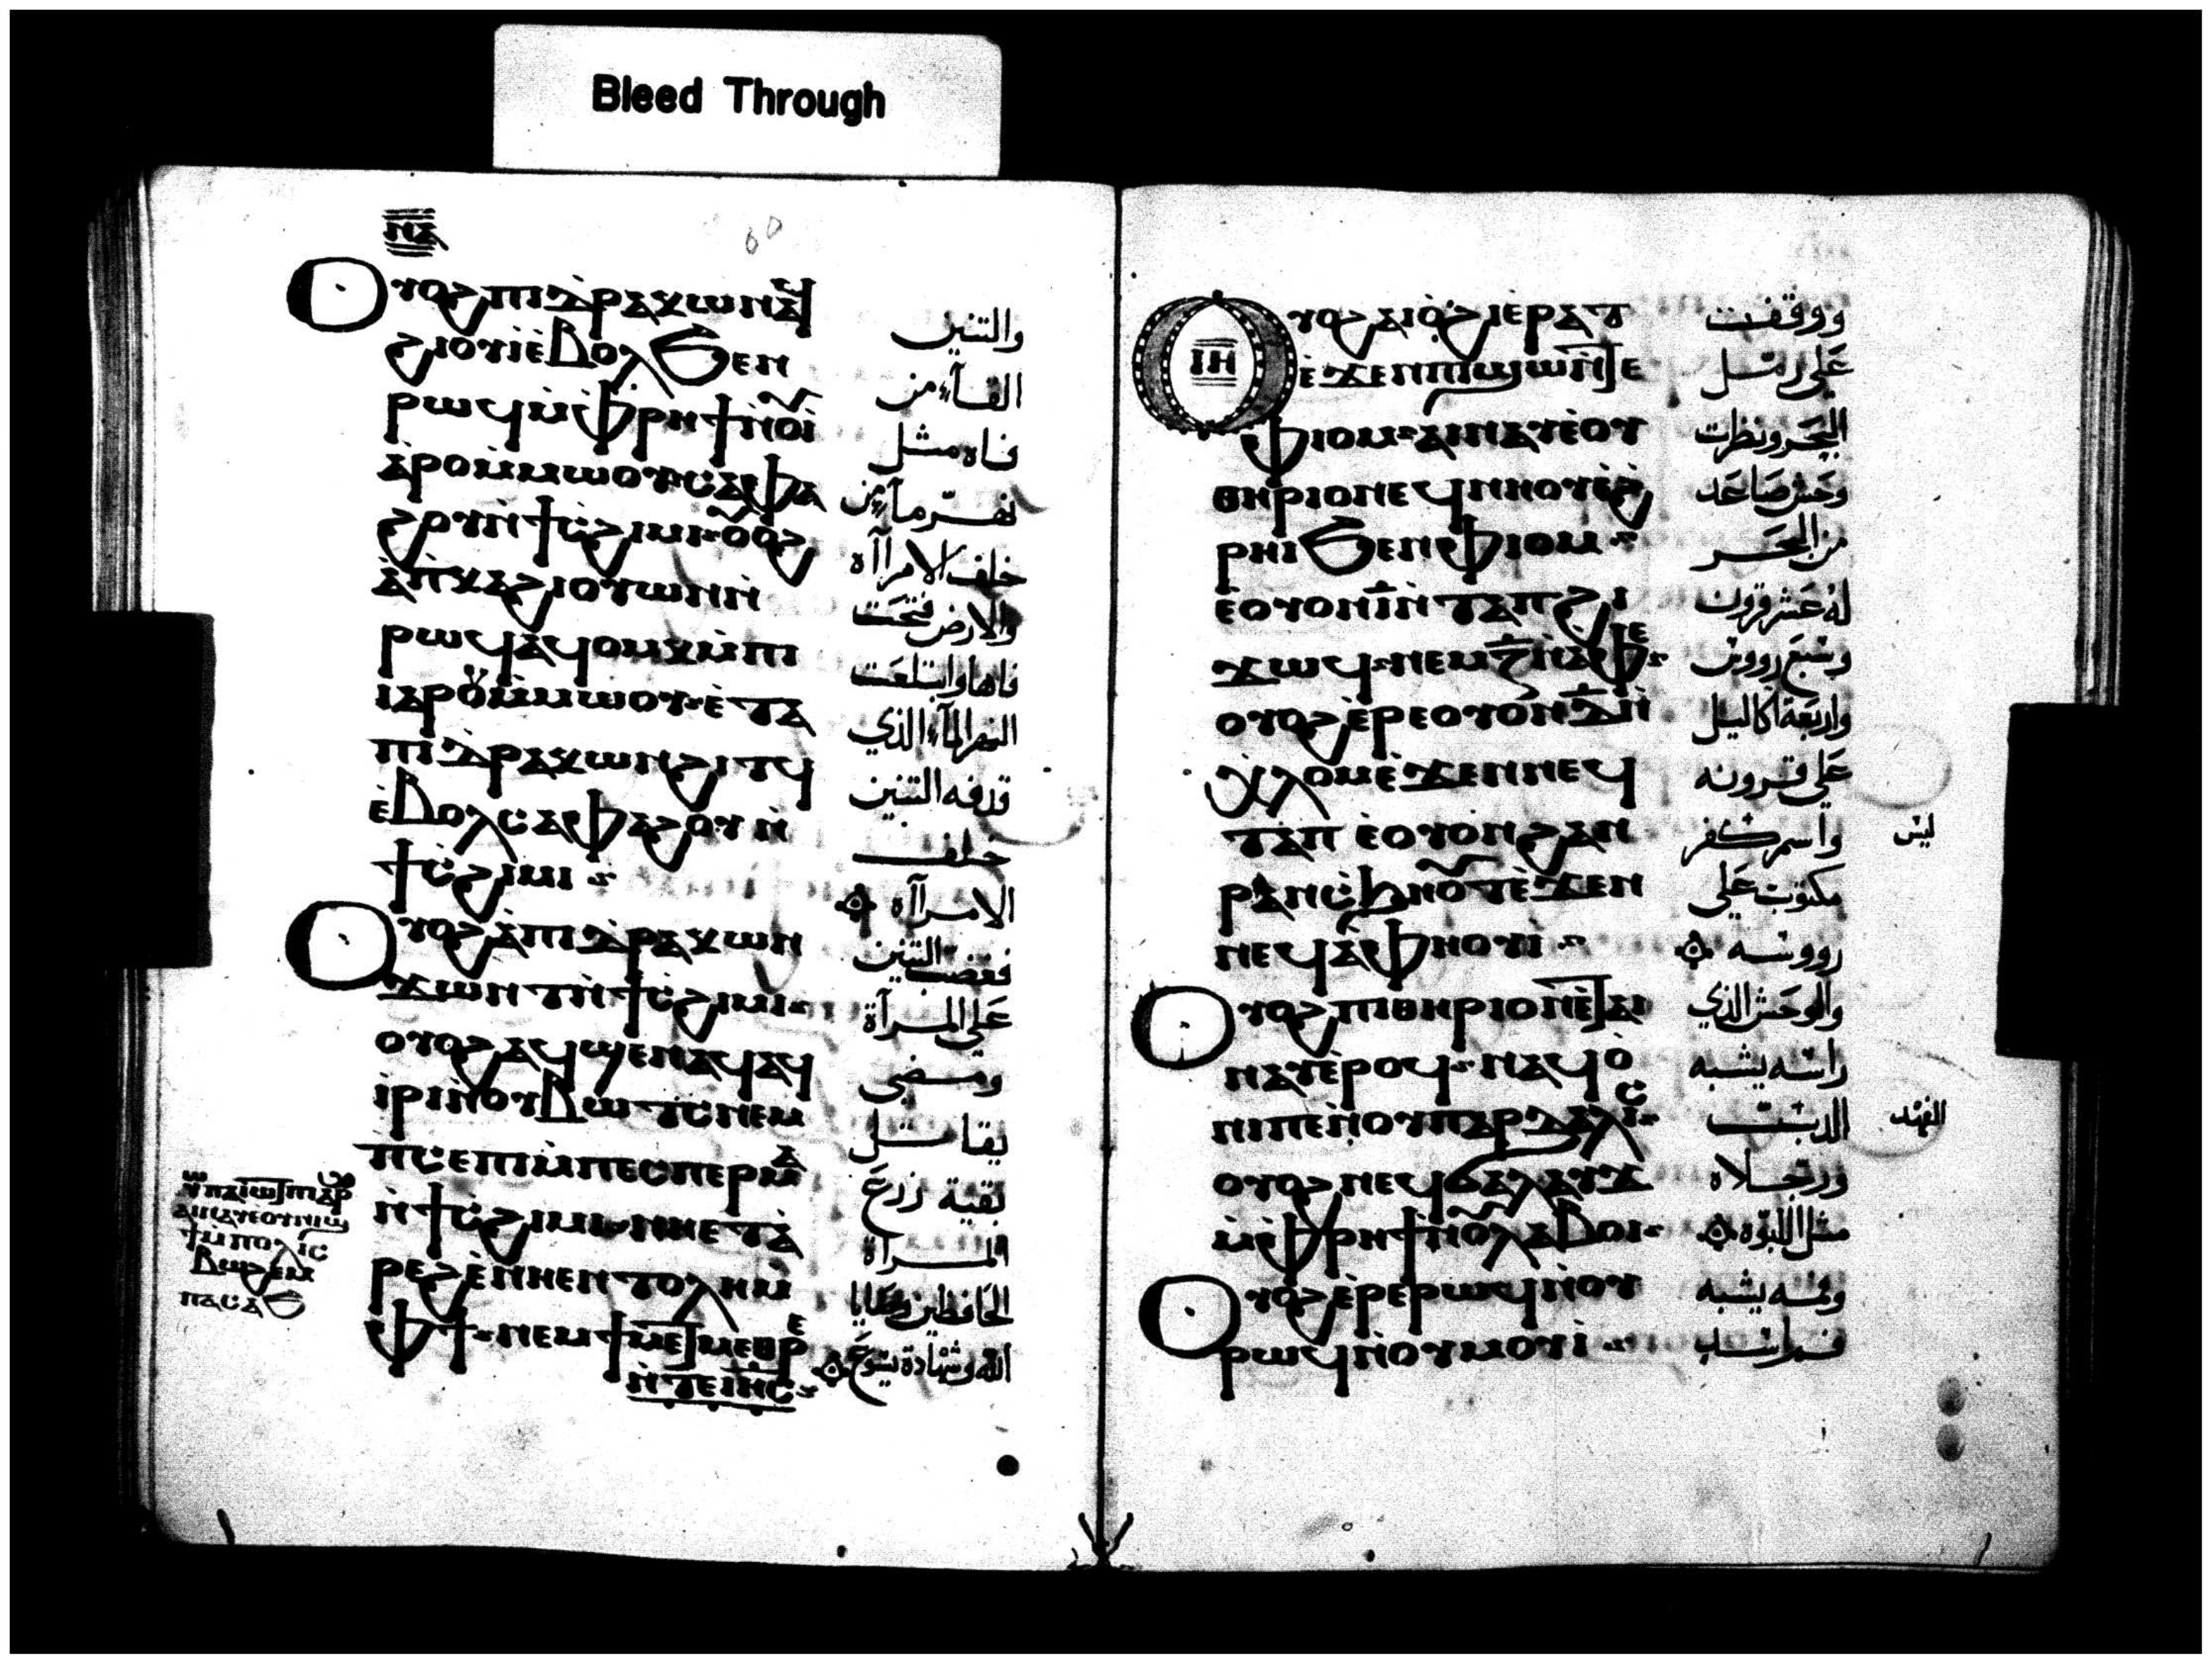 Bleed Through
ⲛⲁ
60
Ⲟⲩⲟϩ ⲡⲓⲇⲣⲁⲕⲱⲛ ⲁϥ
ϩⲓⲟⲩⲓ ⲉⲃⲟⲗ ϧⲉⲛ
ⲣⲱϥ ⲙⲫⲣⲏϯ ⲛⲟⲩ
ⲓⲁⲣⲟ ⲙⲙⲱⲟⲩ ⲥⲁⲫⲁ
ϩⲟⲩ ⲛϯⲥϩⲓⲙⲓ ⲟⲩⲟϩ
ⲁⲡⲕⲁϩⲓ ⲟⲩⲱⲛ ⲛ
ⲣⲱϥ ⲁϥⲟⲙⲕ ⲙⲡⲓ
ⲓⲁⲣⲟ ⲙⲙⲱⲟⲩ ⲉⲧⲁ
ⲡⲓⲇⲣⲁⲕⲱⲛ ϩⲓⲧϥ
ⲉⲃⲟⲗ ⲥⲁⲫⲁϩⲟⲩ ⲛ
ϯⲥϩⲓⲙⲓ
Ⲟⲩⲟϩ ⲁⲡⲓⲇⲣⲁⲕⲱⲛ
ϫⲱⲛⲧ ⲛϯⲥϩⲓⲙⲓ
ⲟⲩⲟϩ ⲁϥϣⲉⲛⲁϥ ⲁϥ
ⲓⲣⲓ ⲛⲟⲩⲃⲱⲧⲥ ⲛⲉⲙ
ⲡⲥⲉⲡⲓ ⲙⲡⲉⲥⲡⲉⲣⲙⲁ
ⲛϯⲥϩⲓⲙⲓ ⲛⲏⲉⲧⲁ
ⲣⲉϩ ⲉⲛⲏⲉⲛⲧⲟⲗⲏ ⲙ
ⲫϯ ⲛⲉⲙ ϯⲙⲉⲧⲙⲉⲑⲣⲉ
ⲛⲧⲉ ⲓⲏⲥ
والتنين
القآء من
فاه مثل
نهر مآء من
خلف الامرآاه
والارض فتحت
فاها وابتلعت
النهر المآء الذي
قذفه التنين
خلف
الامرآاه
فغضب التنين
على المرآة
ومضى
يقاتل
بقية زرع
المرآة
الحافظين وصايا
الله وشهادة يسوع
ⲓⲏ
Ⲟⲩⲟϩ ⲁⲓⲟϩⲓ ⲉⲣⲁⲧ
ⲉϫⲉⲛ ⲡⲓϣⲱ ⲛⲧⲉ
ⲫⲓⲟⲙ ⲁⲓⲛⲁⲩ ⲉⲟⲩ
ⲑⲏⲣⲓⲟⲛ ⲉϥⲛⲏⲟⲩ ⲉϩ
ⲣⲏⲓ ϧⲉⲛ ⲫⲓⲟⲙ
ⲉⲟⲩⲟⲛ ⲓ ⲛⲧⲁⲡ ϩⲓ
ϫⲱϥ ⲛⲉⲙ ⲍ ⲛⲁⲫⲉ
ⲟⲩⲟϩ ⲉⲣⲉⲟⲩⲟⲛ ⲇ ⲛ
ⲭⲗⲟⲙ ⲉϫⲉⲛ ⲛⲉϥ
ⲧⲁⲡ ⲉⲟⲩⲟⲛ ϩⲁⲛ
ⲣⲁⲛ ⲥϧⲏⲟⲩⲧ ⲉϫⲉⲛ
ⲛⲉϥⲁⲫⲏⲟⲩⲓ
Ⲟⲩⲟϩ ⲡⲓⲑⲏⲣⲓⲟⲛ ⲉⲧⲁⲓ
ⲛⲁⲩ ⲉⲣⲟϥ ⲛⲁϥⲟ
ⲛⲓ ⲡⲉ ⲛⲟⲩⲡⲁⲣⲇⲁⲗⲓⲥ
ⲟⲩⲟϩ ⲛⲉϥϭⲁⲗⲁⲩϫ
ⲙⲫⲣⲏϯ ⲛⲟⲩⲗⲁⲃⲟⲓ
Ⲟⲩⲟϩ ⲉⲣⲉⲣⲱϥ ⲛⲟⲩ
ⲣⲱϥ ⲛⲟⲩⲙⲟⲩⲓ
ووقفت
على رمل
البحر ونظرت
وحش صاعد
من البحر
له عشر قرون
وسبع رووس
واربعة اكاليل
على قرونه
واسم كفر
مكتوب على
رووسه
والوحش الذي
راسه يشبه
الدب
ورجلاه
مثل اللبوه
وفمه يشبه
فم اسد
ليس
الفهد